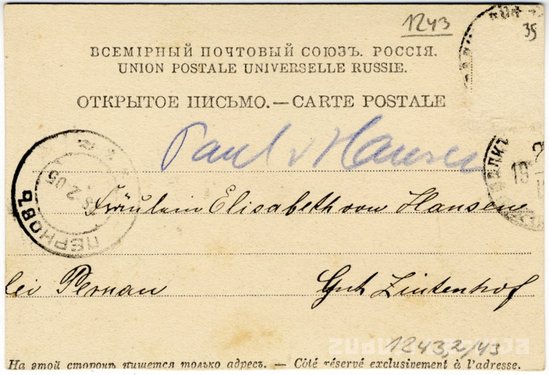 1243
35
ВСЕМІРНЫЙ ПОЧТОВЫЙ СОЮЗЪ. РОССІЯ.
UNION POSTALE UNIVERSELLE RUSSIE.
ОТКРЫТОЕ ПИСЬМО.—CARTE POSTALE
Paul v Hansen
2.05
ПЕРНОВЪ
19
Fräulein Elisabeth von Hansen
bei Pernau Gut Zintenhof
1243,2/43
На этой сторонѣ пишется только адресъ. — Côté réservé exclusivement à l'adresse.